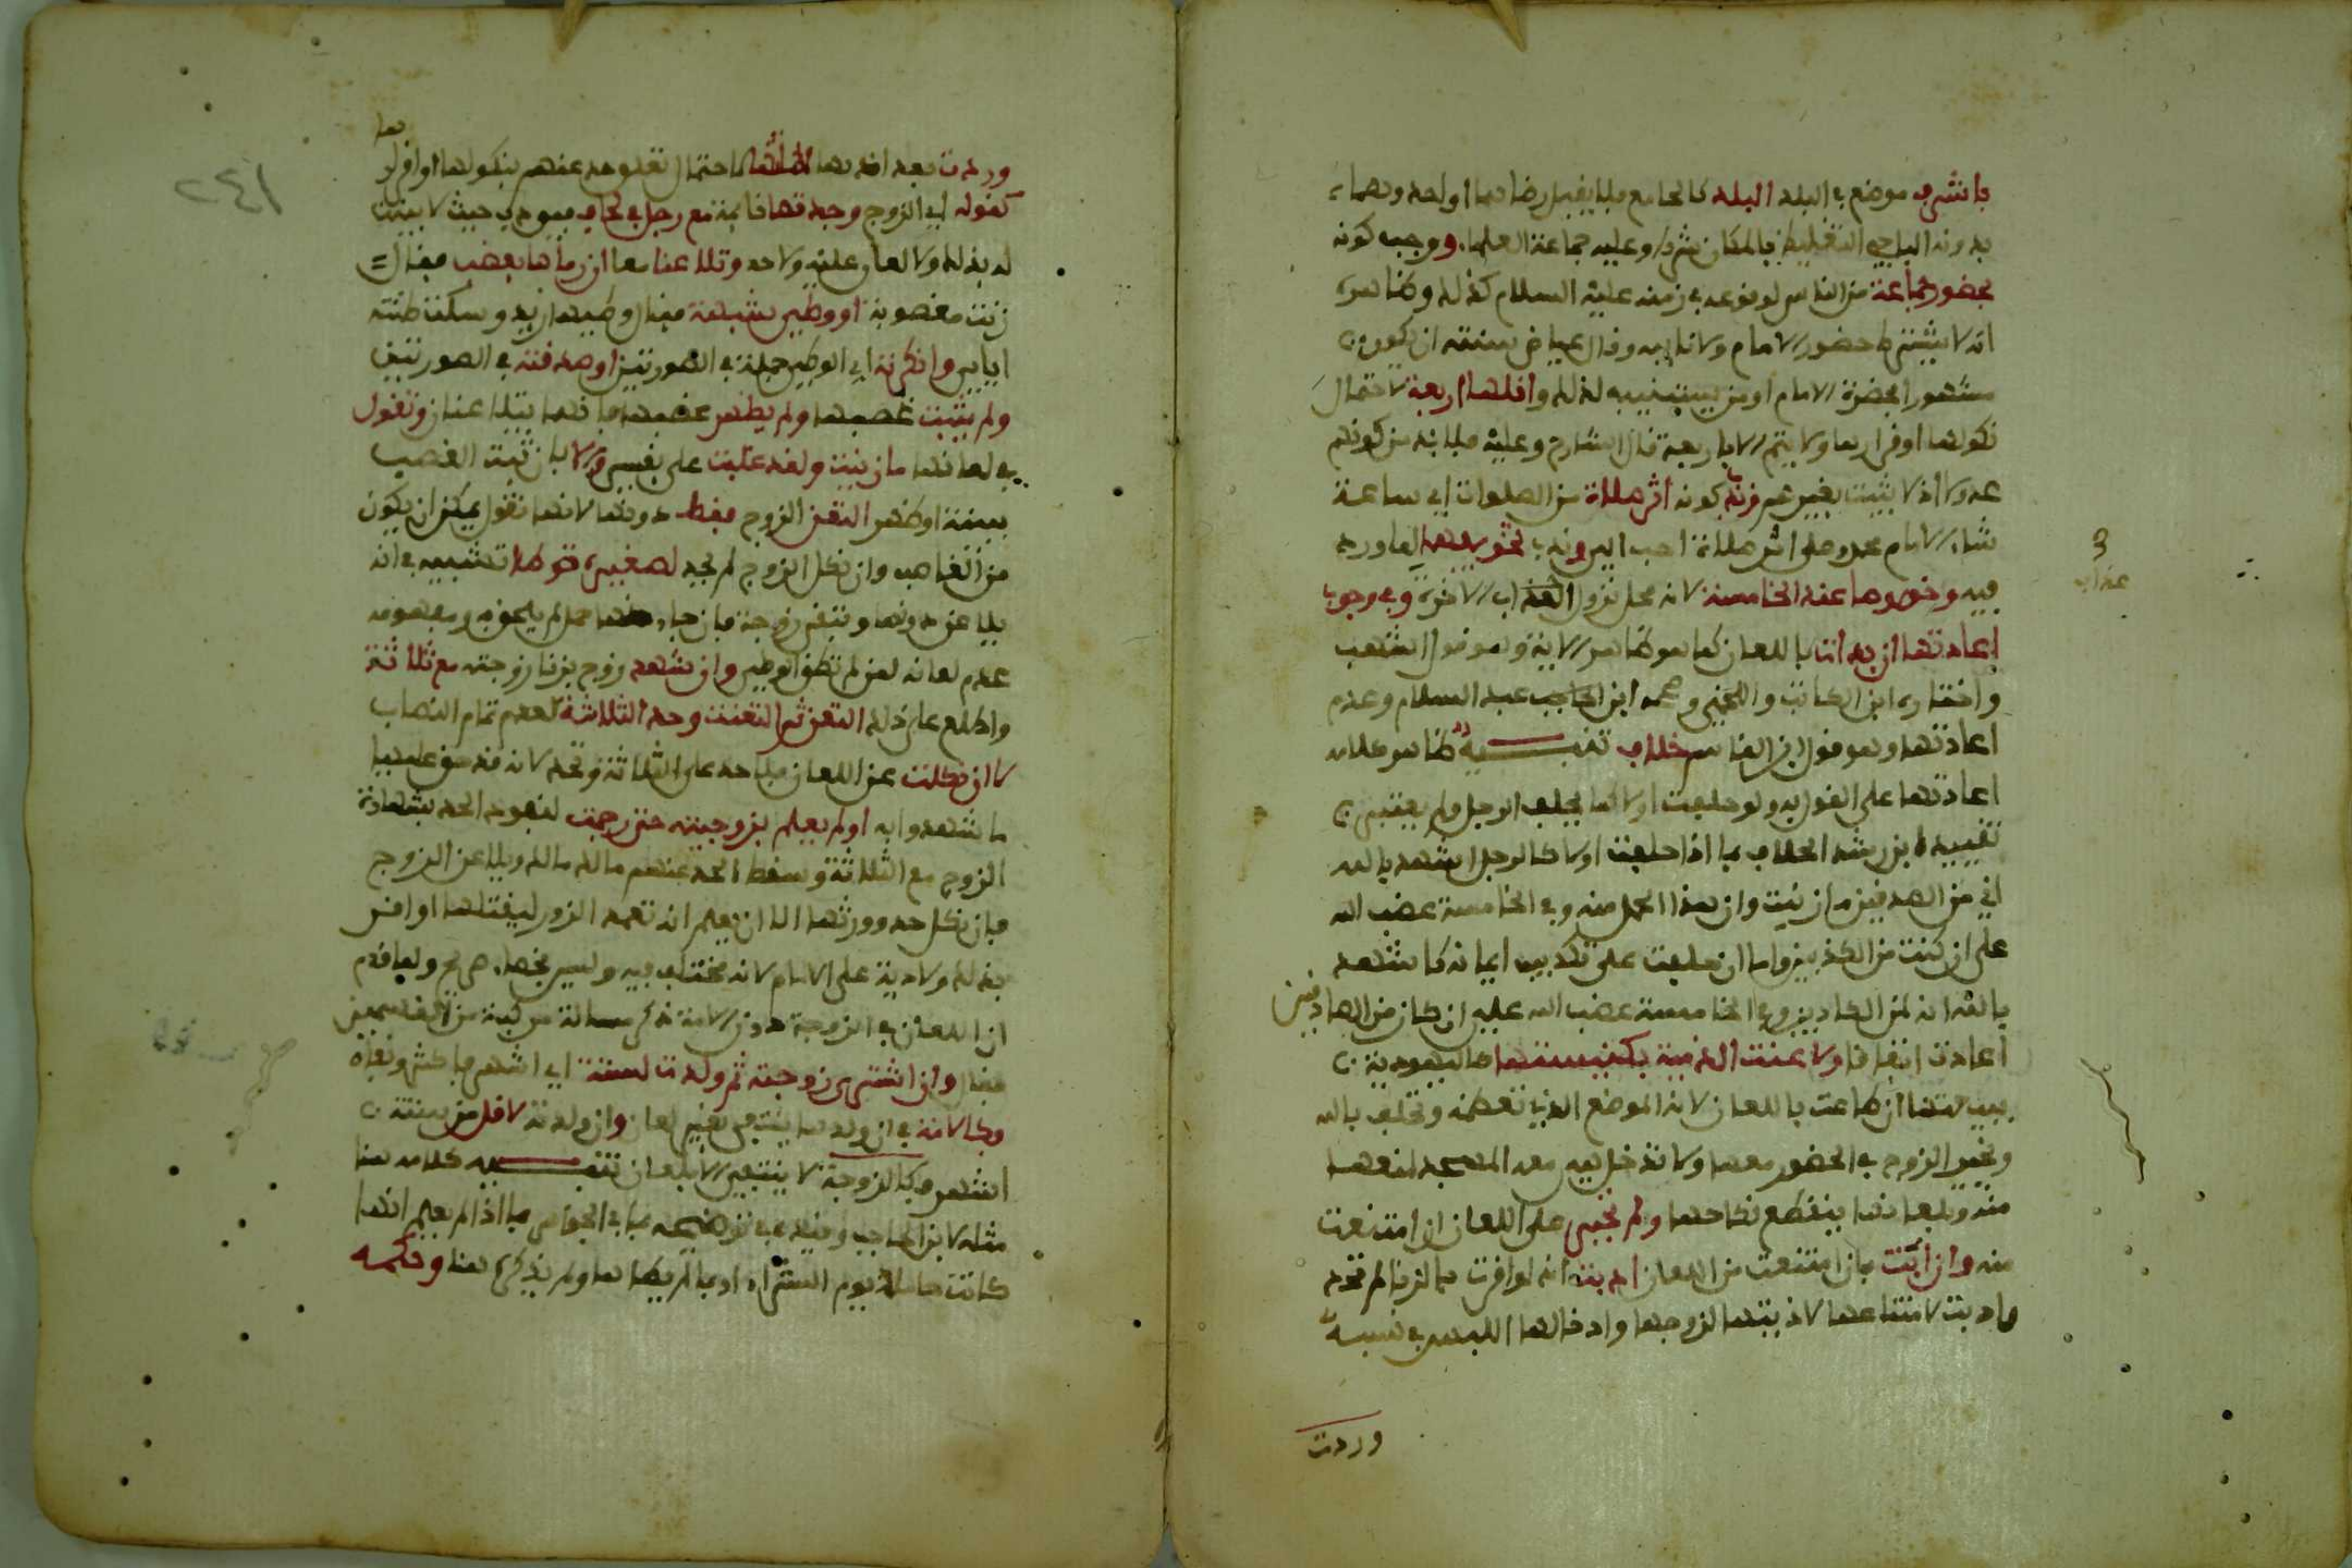 باشرف موضع في البلد البلد كالجامع فلا يقبل رضاهما او احدهما
بدونه الباجي التغليظ بالمكان شرط وعليه جماعة العلماء ووجب كونه
بحضور جماعة من الناس لوقوعه في زمنه عليه السلام كذلك وظاهره
انه لا يشترط حضور الامام ولا نايبه وقال عياض سنته ان يكون
مشهورا بحضرة الامام او من يستنيبه لذلك واقلها اربعة لاحتمال
نكولها او اقرارها ولا يتم الا باربعة قال الشارح وعليه فلا بد من كونهم
عدولا اذ لا يثبت بغيرهم وندب كونه اثر صلاة من الصلوات اي ساعة
شاء الامام محمد وعلى اثر صلاة احب الي وندب تخويفهما لما ورد
فيه وخصوصا عند الخامسة لانه محل نزول العذاب الاخرة وفي وجوب
اعادتها ان بدات باللعان كما هو ظاهر الاية وهو قول اشهب
واختاره ابن الكاتب واللخمي وصححه ابن الحاجب عبد السلام وعدم
اعادتها وهو قول ابن القاسم خلاف تنبيه ظاهر كلامه
اعادتها على القول به ولو حلفت اولا كما يحلف الرجل ولم يعتبر
تقييد ابن رشد الخلاف بما اذا حلفت اولا كالرجل اشهد بالله
اني من الصدقين ما زنيت وان هذا الحمل منه وفي الخامسة غضب الله
علي ان كنت من الكذبين واما ان حلفت على تكذيب ايمانه كاشهد
بالله انه لمن الكاذبين وفي الخامسة غضب الله عليها ان كان من الصادقين
اعادت اتفاقا ولاعنت الذمية بكنيستها كاليهودية
ببيعتها ان طاعت باللعان لانه الموضع الذي تعظمه وتحلف بالله
ويخير الزوج في الحضور معها ولا تدخل هي معه المسجد لمنعها
منه وبلعانها ينقطع نكاحها ولم تجبر على اللعان ان امتنعت
منه وان ابت بان امتنعت من اللعان ادبت لانها لو اقرت بالزنا لم تحد
وادبت لامتناعها لاذيتها لزوجها وادخالها اللبس في نسبه
وردت
3
عذاب
٢٤١
بها
وردت بعد ادبها لملتها لاحتمال تعلق حد عنهم بنكولها او اقرار
كقوله اي الزوج وجدتها نائمة مع رجل في لحاف فيودب حيث لا بينة
له بذلك ولا لعان عليه ولا حد وتلاعنا معا ان رماها بغصب فقال
زنيت مغصوبة او وطئ شبهة فقال وطيها زيد وسكتت ظنته
اياي وانكرته اي الوطئ جملة في الصورتين او صدقته في الصورتين
ولم يثبت غصبها ولم يظهر غصبها فانهما يتلاعنان وتقول
في لعانها ما زنيت ولقد غلبت على نفسي والا بان ثبت الغصب
ببينة او ظهر التعن الزوج فقط دونها لانها تقول يمكن ان يكون
من الغاصب وان نكل الزوج لم يحد لصغيرة توطا تشبيه في انه
يلاعن دونها وتبقى زوجة فان جاء منها حمل لم يلحق به ومفهومه
عدم لعانه لمن لم تطق الوطئ وان شهد زوج بزنا زوجته مع ثلاثة
واطلع على ذلك التعن ثم التعنت وحد الثلاثة لعدم تمام النصاب
لا ان نكلت عن اللعان فلا حد على الثلاثة وتحد لانه قد حق عليها
ما شهدوا به او لم يعلم بزوجيته حتى رجمت لنفوذ الحد بشهادة
الزوج مع الثلاثة وسقط الحد عنهم مالك مالك ويلاعن الزوج
فان نكل حد وورثها الا ان يعلم انه تعمد الزور ليقتلها او اقر
بذلك ولا دية على الامام لانه مختلف فيه وليس بخطا صريح ولما قدم
ان اللعان في الزوجة دون الامة ذكر مسالة مركبة من القسمين
فقال وان اشترى زوجته ثم ولدت لستة اي اشهر فاكثر ونفاه
فكالامة في ان ولدها ينتفي بغير لعان وان ولدته لاقل من ستة
اشهر فكالزوجة لا ينتفي الا بلعان تنبيه كلامه هنا
مثله لابن الحاجب وقيده في توضيحه بما في الجواهر بما اذا لم يعلم انها
كانت حاملا يوم الشراء او بما لم يطاها ولم يذكره هنا وحكمه